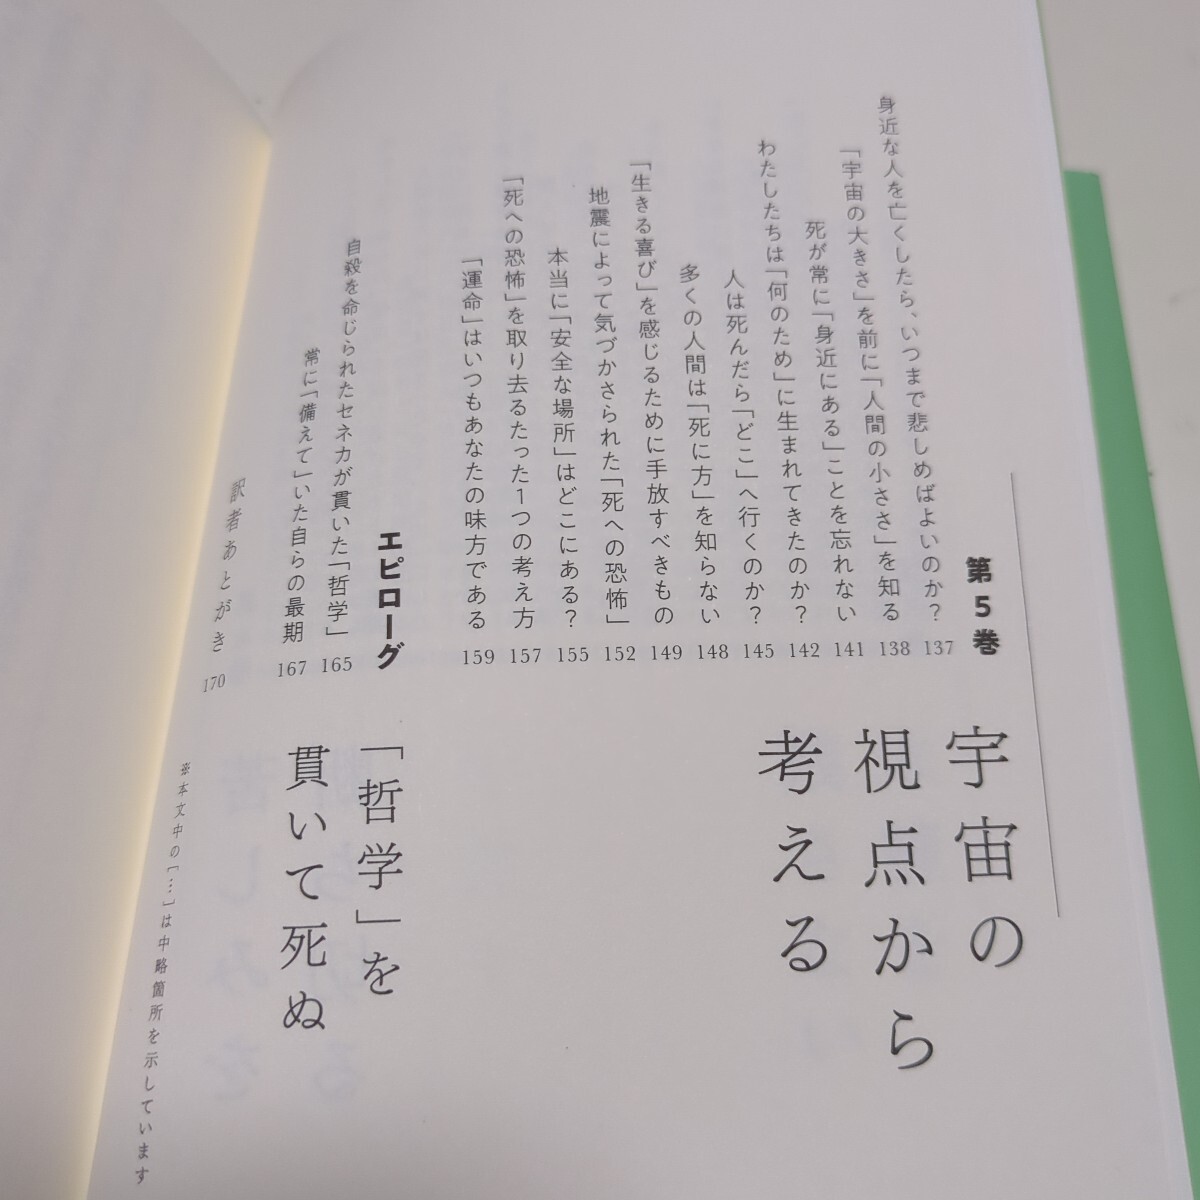 第5巻
宇宙の
視点から
考える
身近な人を亡くしたら、いつまで悲しめばよいのか? 137
「宇宙の大きさ」を前に「人間の小ささ」を知る 138
死が常に「身近にある」ことを忘れない 141
わたしたちは「何のため」に生まれてきたのか? 142
人は死んだら「どこ」へ行くのか? 145
多くの人間は「死に方」を知らない 148
「生きる喜び」を感じるために手放すべきもの 149
地震によって気づかされた「死への恐怖」 152
本当に「安全な場所」はどこにある? 155
「死への恐怖」を取り去るたった1つの考え方 157
「運命」はいつもあなたの味方である 159
エピローグ
「哲学」を
貫いて死ぬ
自殺を命じられたセネカが貫いた「哲学」 165
常に「備えて」いた自らの最期 167
訳者あとがき 170
※本文中の[…]は中略箇所を示しています